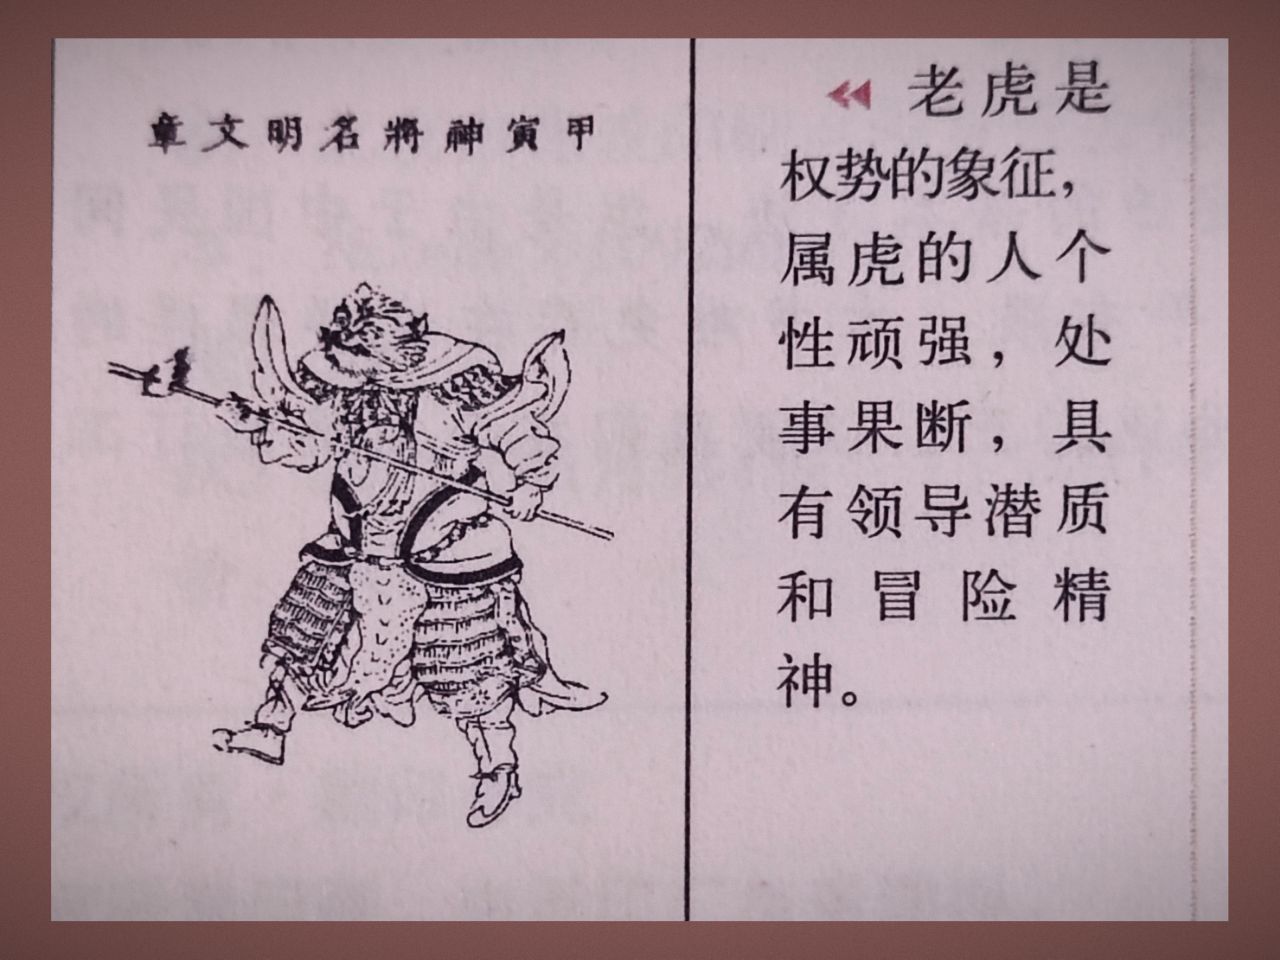 甲寅神將名明文章
老虎是
权势的象征，
属虎的人个
性顽强，处
事果断，具
有领导潜质
和冒险精
神。